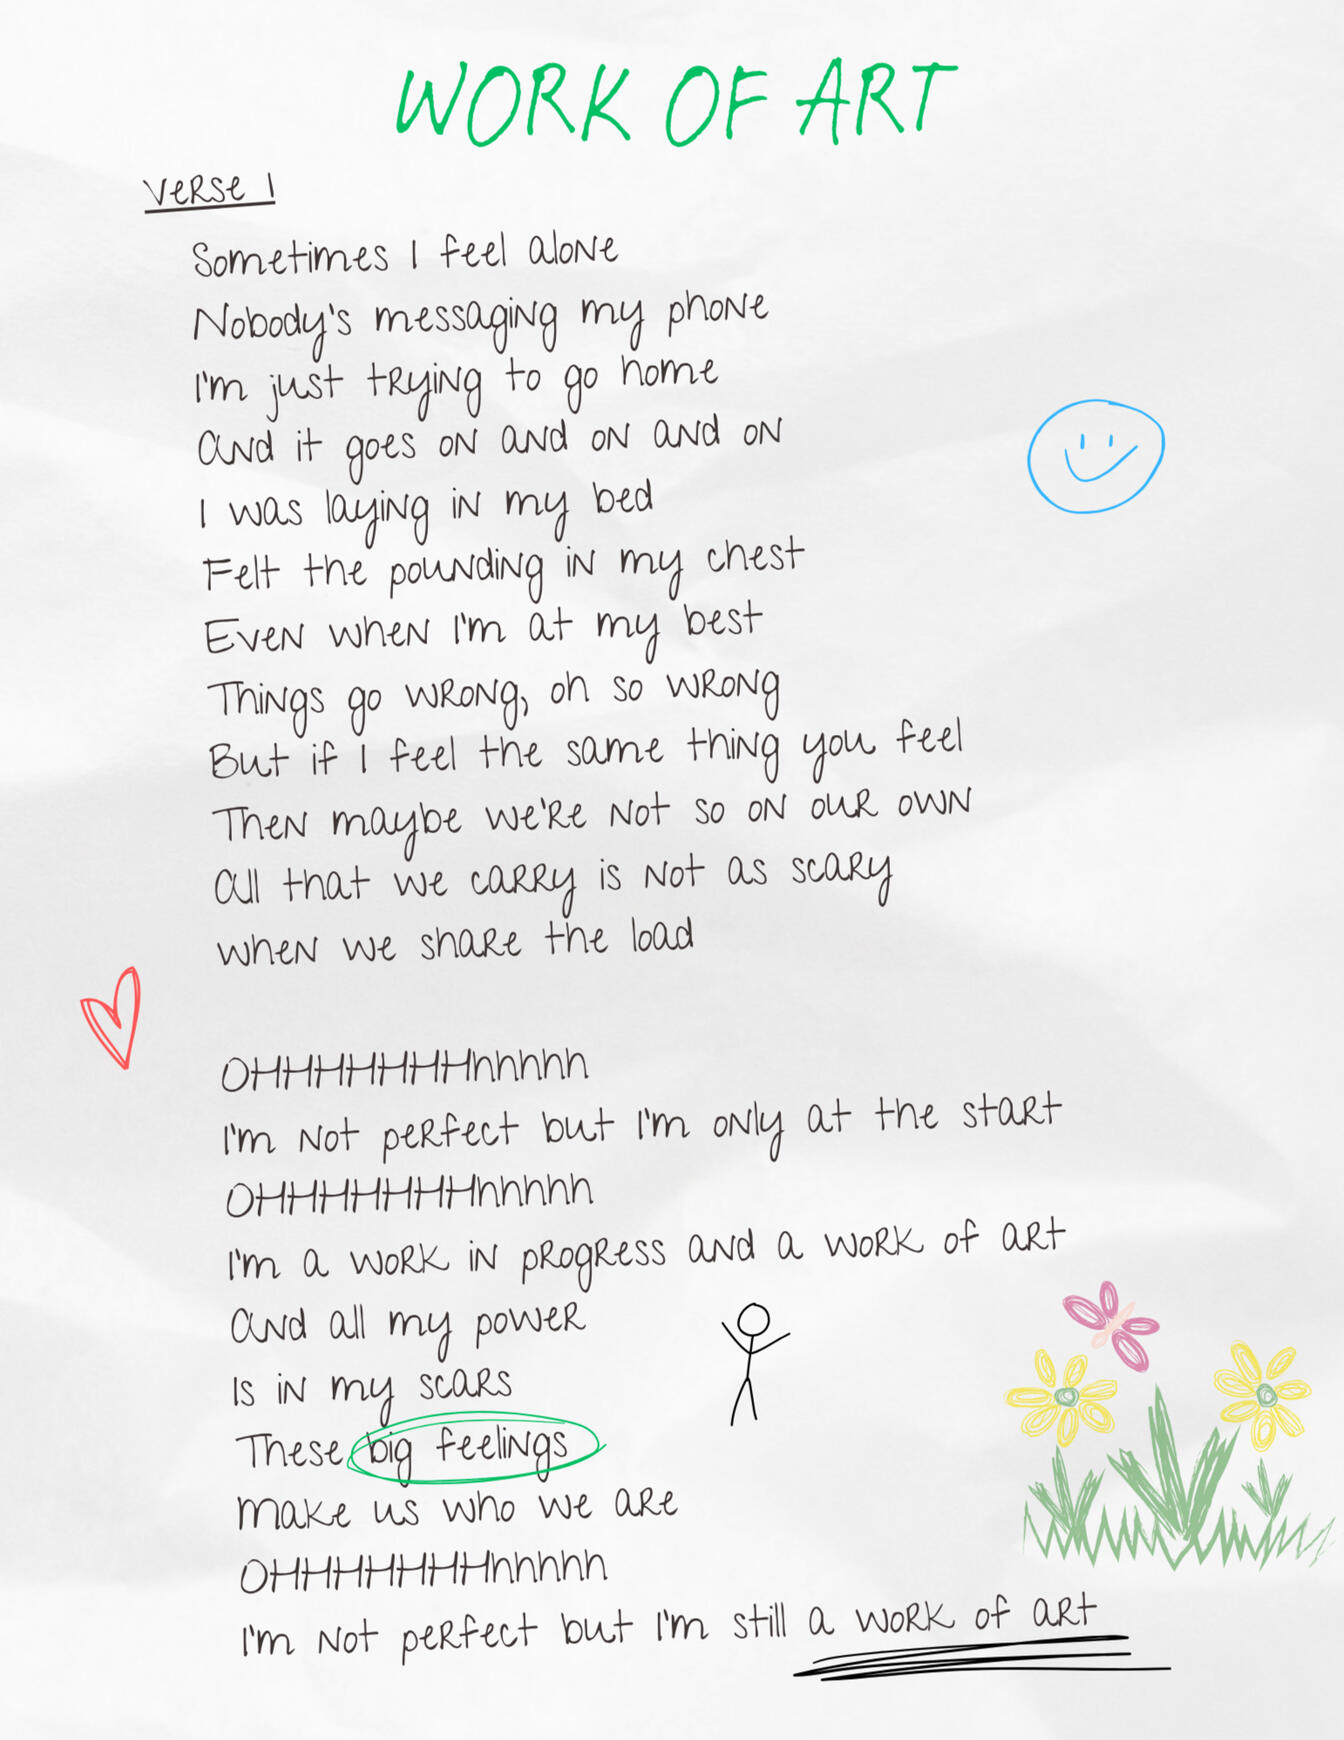 WORK OF ART
Verse 1
Sometimes I feel alone
Nobody's messaging my phone
I'm just trying to go home
And it goes on and on and on
I was laying in my bed
Felt the pounding in my chest
Even when I'm at my best
Things go wrong, oh so wrong
But if I feel the same thing you feel
Then maybe we're not so on our own
All that we carry is not as scary
when we share the load
OHHHHHHHhhhhh
I'm not perfect but I'm only at the start
OHHHHHHHhhhhh
I'm a work in progress and a work of art
And all my power
Is in my scars
These big feelings
make us who we are
OHHHHHHHhhhhh
I'm not perfect but I'm still a work of art